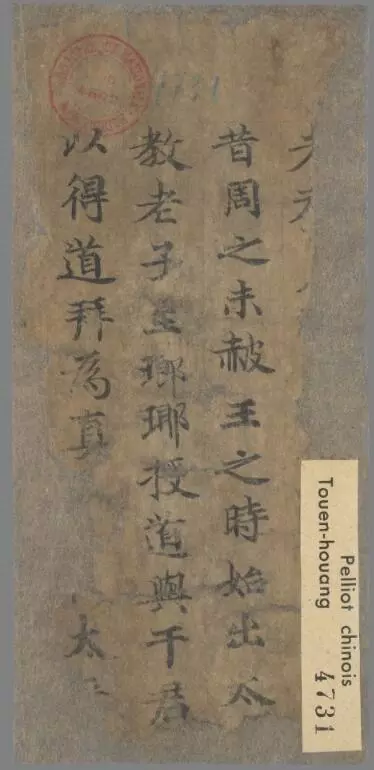 昔周之末赧王之時始出太
教老子至瑯瑘授道與干君
以得道拜為真 太
4731
Pelliot chinois
Touen-houang
4731